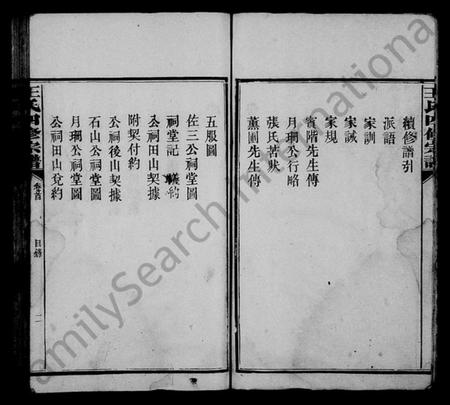 王氏四修宗譜
續修譜引
派語
家訓
家誡
家規
賓階先生傳
月珊公行略
張氏苦狀
薰圃先生傳
五服圖
佐三公祠堂圖
祠堂記
公祠田山契據
附契付約
公祠後山契據
石山公祠堂圖
月珊公祠堂圖
公祠田山兌約
王氏四修宗譜
卷首
目錄
二
FamilySearch International